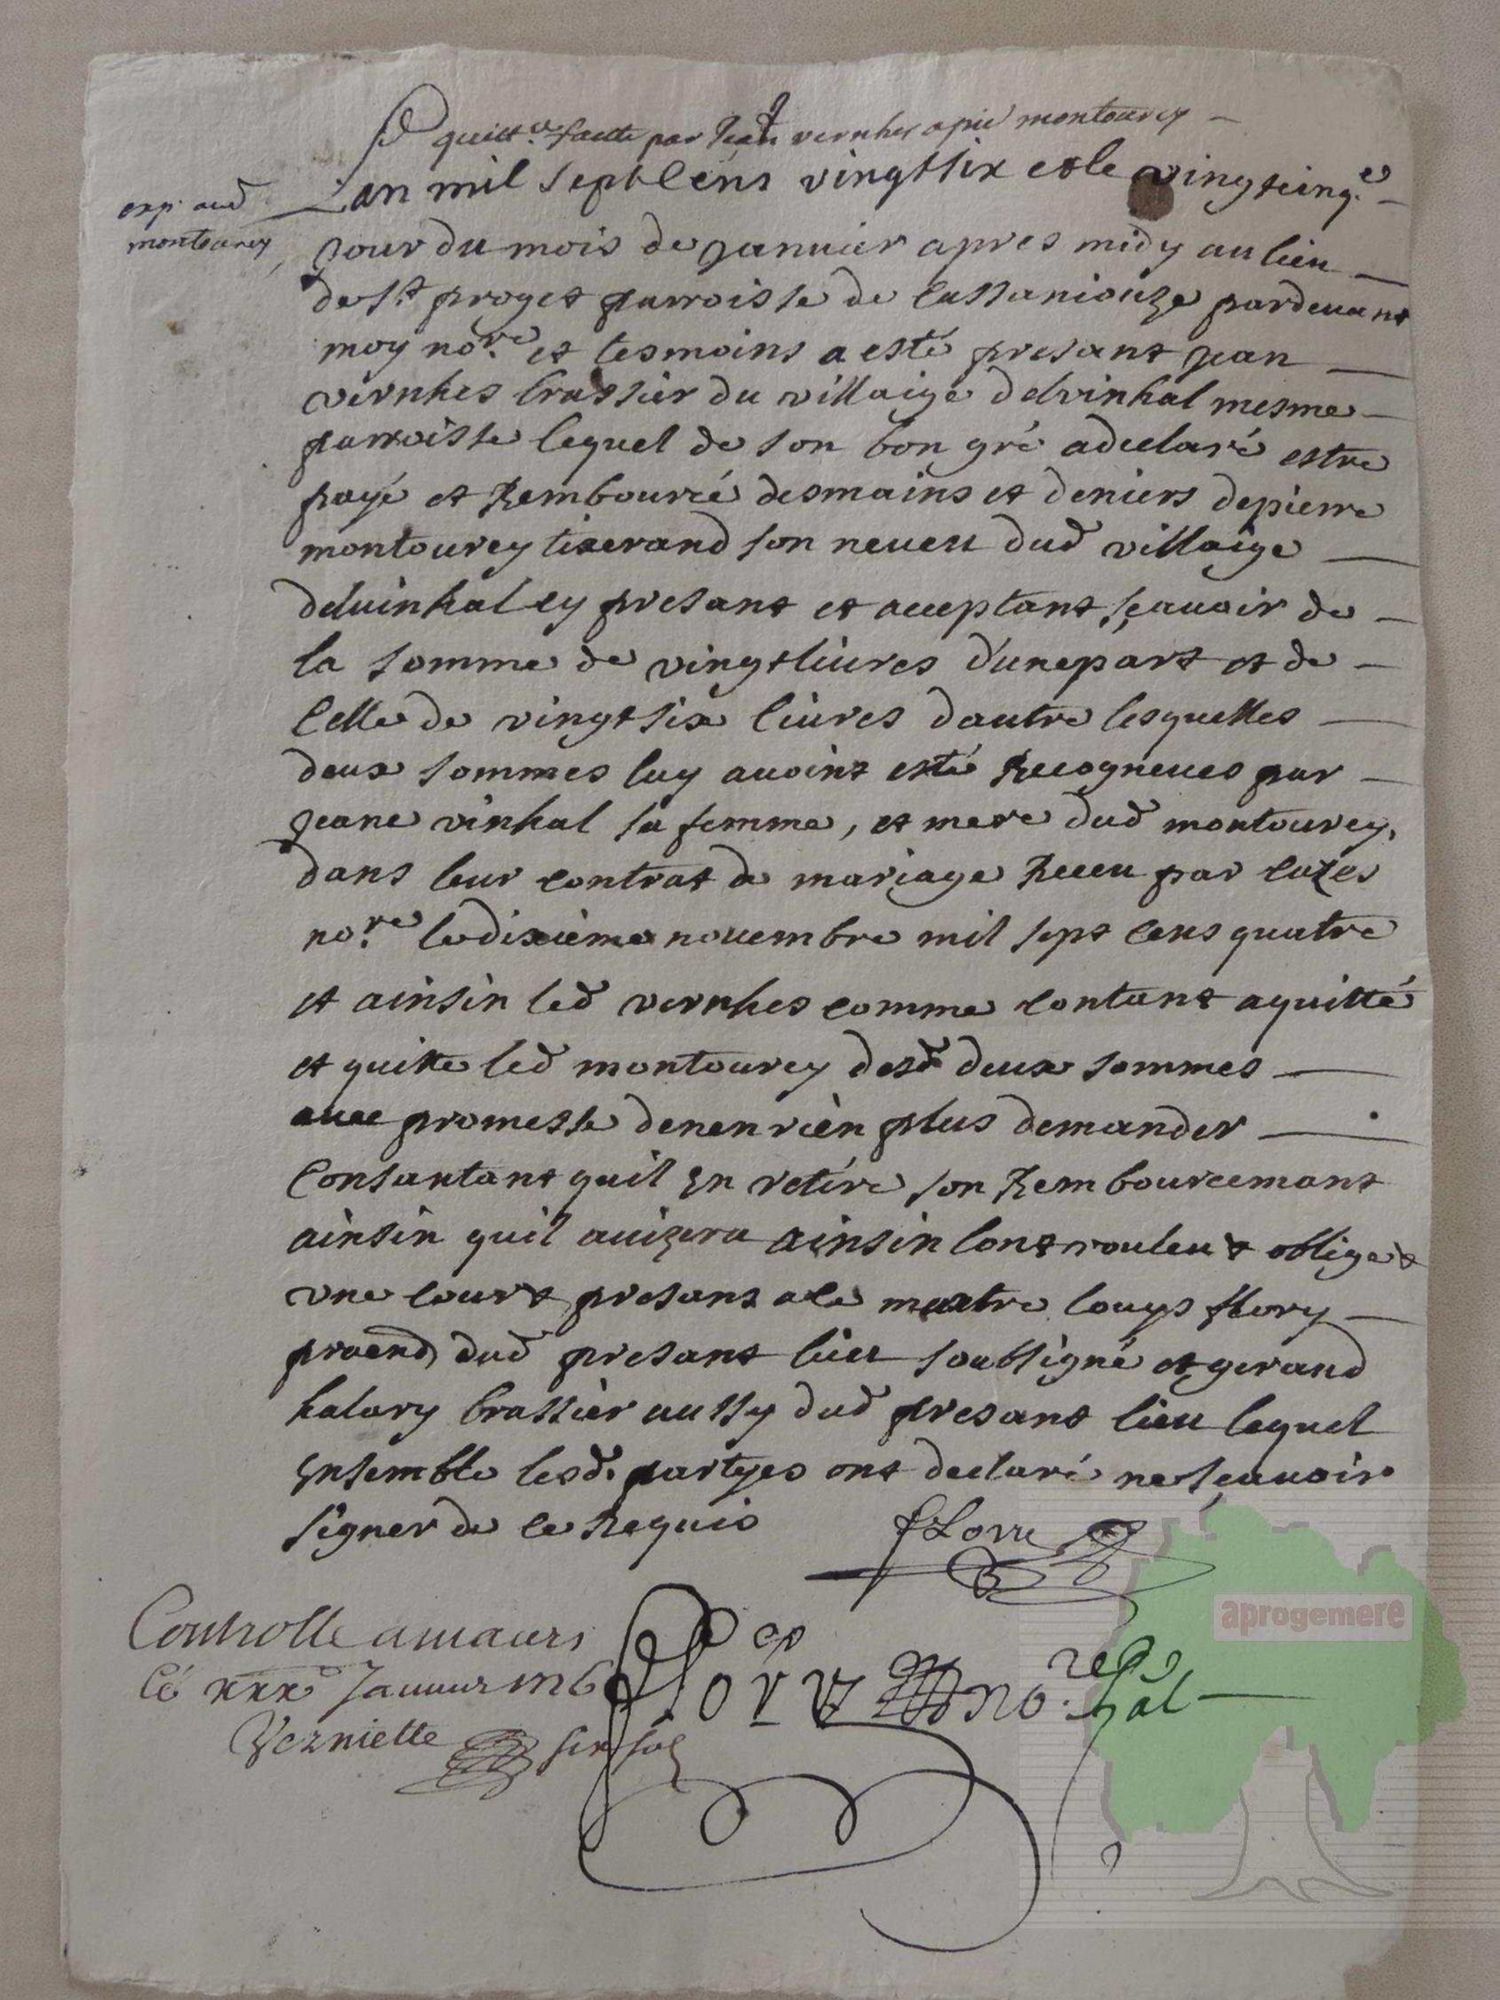 quitt.ce faitte par Jean vernhes a pie montourey
Lan mil sept Cens vingt six et le vingt cinq.e
exp. aud
montourey
Jour du mois de Janvier apres midy au lieu
de St. proget parroisse de Cassaniouze pardevant
moy no.re et tesmoins a esté presant Jean
vernhes brassier du villaige delvinhal mesme
parroisse lequel de son bon gré a declaré estre
payé et Rembourcé desmains et deniers de pierre
montourey tixerand son neveu dud village
delvinhal ey presant et acceptant, sçavoir de
la somme de vingt livres d'une part et de
Celle de vingt six livres dautre lesquelles
deux sommes luy avoint esté Recogneues par
Jeane vinhal sa femme, et mere dud montourey,
dans leur contrat de mariage Receu par Cazes
no.re le dixième novembre mil sept Cens quatre
et ainsin led vernhes comme Contant a quitté
et quitte led montourey desd deux sommes
avec promesse denen rièn plus demander
Consantant quil En retire son Rembourcemant
ainsin quil avizera ainsin lont vouleu et obligé
une Court presans a Ce maitre Louys flory
praend dud presant lieu soubsigné et gerand
halary brassier aussy dud presant lieu lequel
Ensemble lesd. partyes ont declaré ne sçavoir
signer de Ce Requis
flory
Controllé a maurs
Cé xxxe Janvier 1726
Verniette six sols
flory no.re Royal
aprogemere